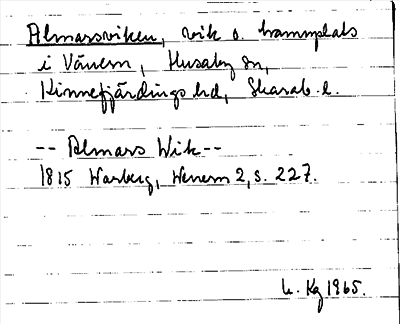 Almarsviken, vik o. hamnplats
i Vänern, Husaby sn,
Kinnefjärdings hd, Skarab. l.
-- Almars Wik --
1815 Warberg, Wenern 2, s. 227.
L. Kg 1965.